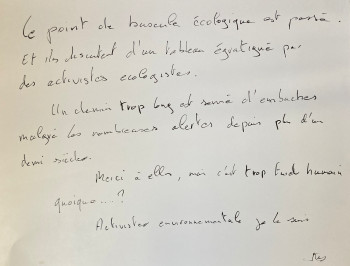 Le point de bascule écologique est passé.
Et ils discutent d'un tableau égratigné par
des activistes écologistes.
Un chemin trop long et semé d'embuches
malgré les nombreuses alertes depuis plus d'un
demi siècle.
Merci à elles, mais c'est trop tard humain
quoique....?
Activistes environnementale je le suis